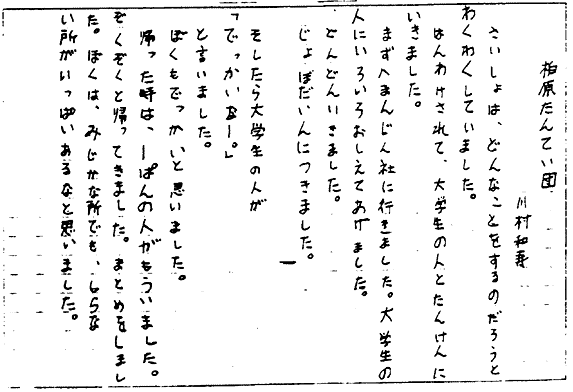 柏原たんてい団
川村和寿
さいしょは、どんなことをするのだろうと
わくわくしていました。
はんわけされて、大学生の人とたんけんに
いきました。
まずへまんじん社に行きました。大学生の
人にいろいろおしえてあげました。
どんどんいきました。
じょぼだいんにつきました。
そしたら大学生の人が
「でっかいなー。」
と言いました。
ぼくもでっかいと思いました。
帰った時は、一ぱんの人がもういました。
ぞくぞくと帰ってきました。まとめをしまし
た。ぼくは、みじかな所でも、しらな
い所がいっぱいあるなと思いました。